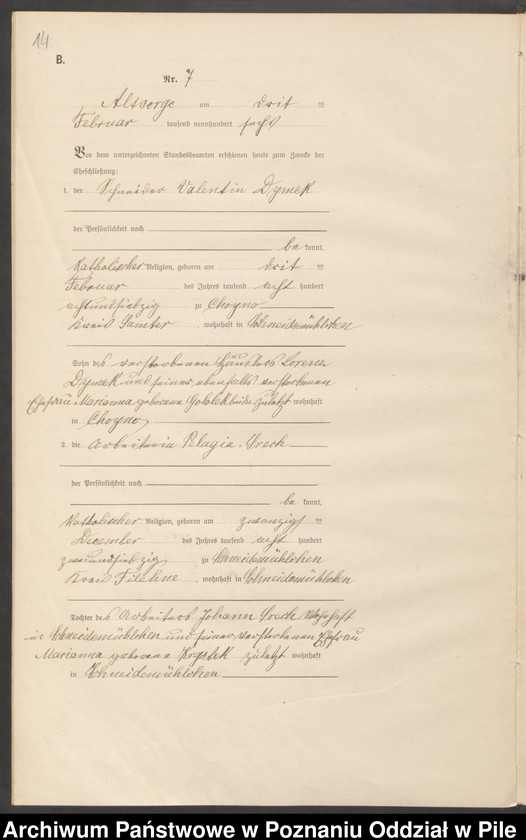 14
B.
Nr. 7
Alsorge am drit en
Februar tausend neunhundert sechs
Vor dem unterzeichneten Standesbeamten erschienen heute zum Zwecke der
Eheschließung:
1. der Schneider Valentin Dymek
der Persönlichkeit nach
be kannt,
Katholischer Religion, geboren am drit en
Februar des Jahres tausend acht hundert
achtundsiebzig zu Choyno
Kreis Samter, wohnhaft in Schneidemühlchen
Sohn des verstorbenen Häuslers Lorenz
Dymek und seiner ebenfalls verstorbenen
Ehefrau Marianna geborene zuletzt wohnhaft
in Choyno
2. die Arbeiterin Pelagia Grech
der Persönlichkeit nach
be kannt,
Katholischer Religion, geboren am zwanzigst en
December des Jahres tausend acht hundert
zweiundsiebzig zu Schneidemühlchen
Kreis Filehne, wohnhaft in Schneidemühlchen
Tochter des Arbeiters Johann Grech wohnhaft
in Schneidemühlchen und seiner verstorbenen Ehefrau
Marianna geborene Krystek zuletzt wohnhaft
in Schneidemühlchen
Archiwum Państwowe w Poznaniu Oddział w Pile